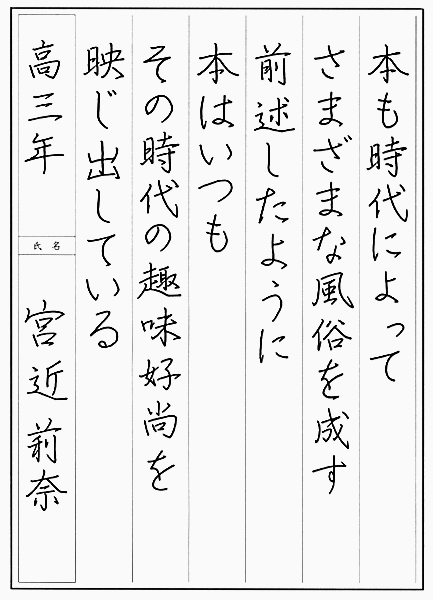 本も時代によって
さまざまな風俗を成す
前述したように
本はいつも
その時代の趣味好尚を
映じ出している
高三年
氏名
宮近莉奈